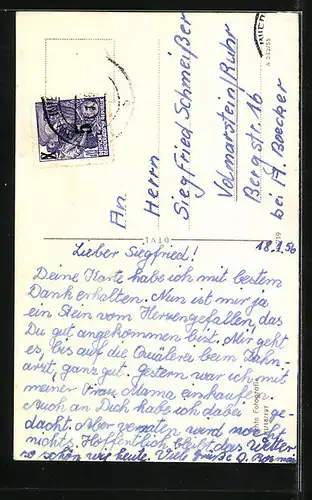 An
Herrn
Siegfried Schmeißer
Volmarstein/Ruhr
Bergstr. 16
bei A. Boecher
A 242/55
18.1.56
Lieber Siegfried!
Deine Karte habe ich mit bestem
Dank erhalten. Nun ist mir ja
ein Stein vom Herzen gefallen, das
Du gut angekommen bist. Mir geht
es, bis auf die Quälerei beim Zahn-
arzt, ganz gut. Gestern war ich mit
meiner Frau Mama einkaufen.
Auch an Dich habe ich dabei ge-
dacht. Aber verraten wird noch
nichts. Hoffentlich bleibt das Wetter
so schön wie heute. Viele Grüße
Echte Fotografie